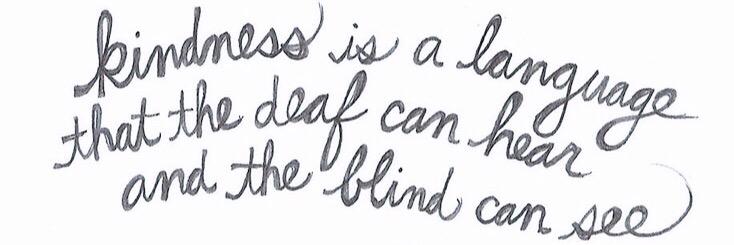 kindness is a language
that the deaf can hear
and the blind can see